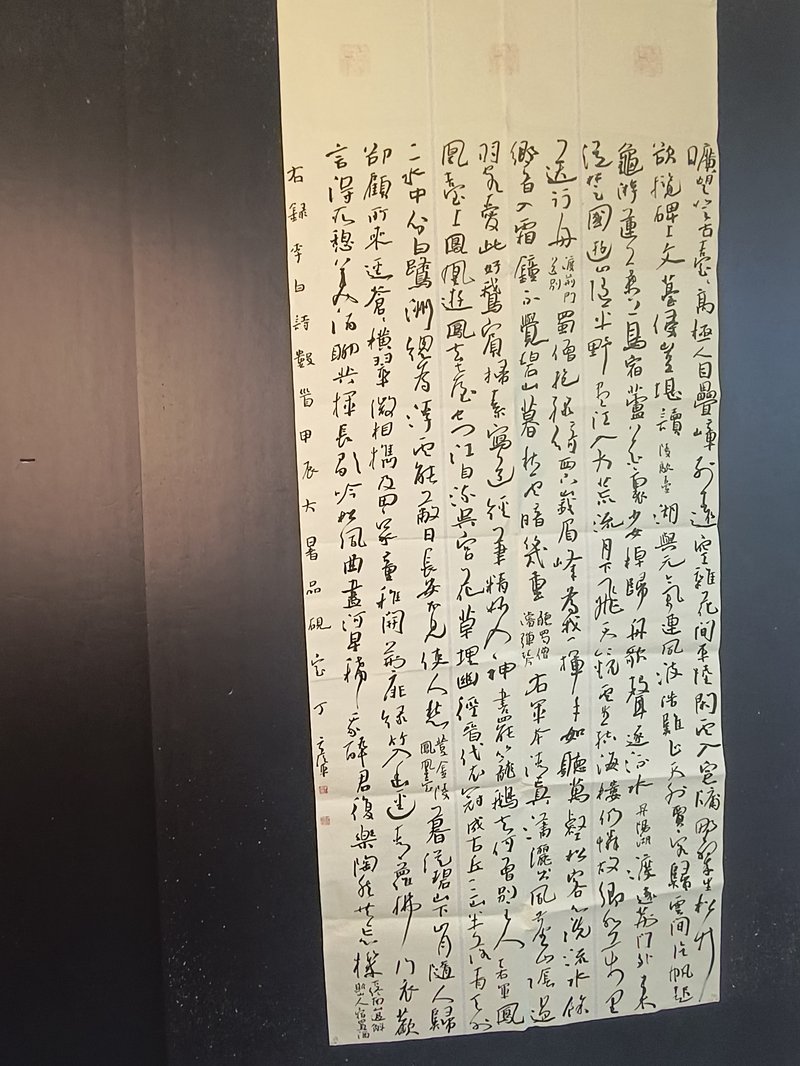 曠望登古臺々高極人目疊嶂列遠空雜花間平陸閑雲入窗牖野翠生松竹
欲攬碑上文苔侵豈堪讀 陵歊臺 湖與元氣連風波浩難止天外賈客歸雲間片帆起
龜游蓮葉上鳥宿蘆花裏少女棹歸舟歌聲逐流水 丹陽湖 渡遠荊門外來
從楚國遊山隨平野盡江入大荒流月下飛天鏡雲生結海樓仍憐故鄉水萬里
送行舟 渡荊門送別 蜀僧抱綠綺西下峨眉峰為我一揮手如聽萬壑松客心洗流水餘
響入霜鐘不覺碧山暮秋雲暗幾重 聽蜀僧濬彈琴 右軍本清真瀟灑出風塵山陰過
羽客愛此好鵝賓掃素寫道經筆精妙入神書罷籠鵝去何曾別主人 右軍 鳳
凰臺上鳳凰遊鳳去臺空江自流吳宮花草埋幽徑晉代衣冠成古丘三山半落青天外
二水中分白鷺洲總為浮雲能蔽日長安不見使人愁 登金陵鳳凰臺 暮從碧山下山月隨人歸
卻顧所來逕蒼々橫翠微相攜及田家童稚開荊扉綠竹入幽逕青蘿拂行衣歡
言得所憩美酒聊共揮長歌吟松風曲盡河星稀我醉君復樂陶然共忘機 終南山過斛斯山人宿置酒
右錄李白詩數首甲辰大暑品硯室丁